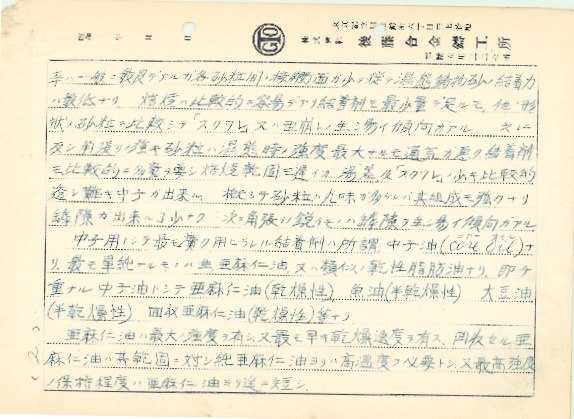 昭 年 月 日
GTO
株式會社 後藤合金鑄工所
率ハ一般ニ最良デアルガ各砂粒間ノ接觸面ガ小ク從テ濕態鑄物砂ノ結着力
ハ最低ナリ 焙焼ハ比較的ニ容易デアリ結着剤モ最少量デ足ルモ、他ノ形
狀ノ砂粒ニ比較シテ「スクワレ」又ハ亜裂レノ生ジ易イ傾向ガアル
反シ角張リ強キ砂粒ハ濕態時ノ強度最大ナルモ通気ガ悪ク結着剤
モ比較的ニ多量ヲ要シ焙焼乾固ニ遅イガ 及「スクワレ」ノ少キ比較的
造リ難キ中子ガ出来ル 概シテ砂粒ハ丸味ガ多ケレバ其組成モ強クナリ
罅隙ガ出来ル事少ナク 次ニ角張ラノ鋭イモノハ罅隙ヲ生ジ易イ傾向ガアル
中子用トシテ最モ廣ク用ヒラレル結着剤ハ所謂 中子油(core oil)ナ
リ、最モ單純ナルモノハ生亜麻仁油、又ハ類似ノ乾性脂肪油ナリ、即チ
重ナル中子油トシテ亜麻仁油(乾燥性) 魚油(半乾燥性) 大豆油
(半乾燥性) 回收亜麻仁油(乾燥性)等ナリ
亜麻仁油ハ最大ノ強度ヲ有シ又最モ早キ乾燥速度ヲ有ス、回收セル亜
麻仁油ハ其乾固ニ対シ純亜麻仁油ヨリハ高温度ヲ必要トシ、又最高強度
ノ保持程度ハ亜麻仁油ヨリ遥ニ短シ
(2)